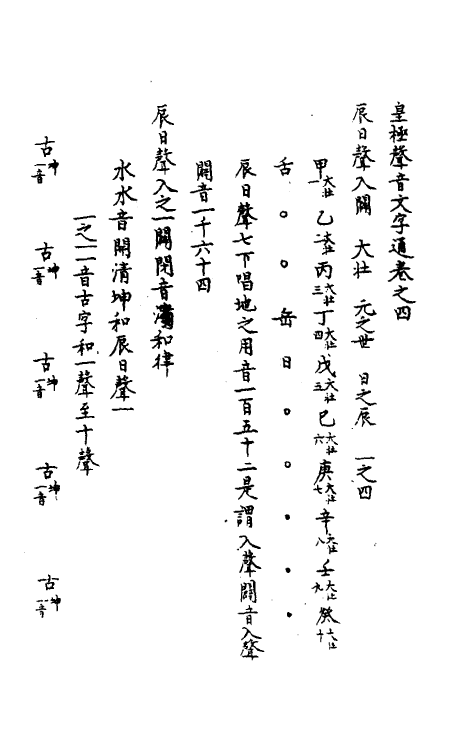 皇極聲音文字通卷之四
辰日聲入闢 大壯 元之世 日之辰 一之四
甲大壯一 乙大壯二 丙大壯三 丁大壯四 戊大壯五 巳大壯六 庚大壯七 辛大壯八 壬大壯九 癸大壯十
舌○○岳日○○●●●
辰日聲七下唱地之用音一百五十二是謂入聲闢音入聲
闢音一千六十四
辰日聲入之一闢開音清和律
水水音開清坤和辰日聲一
一之一一音古字和一聲至十聲
古坤一音 古坤一音 古坤一音 古坤一音 古坤一音